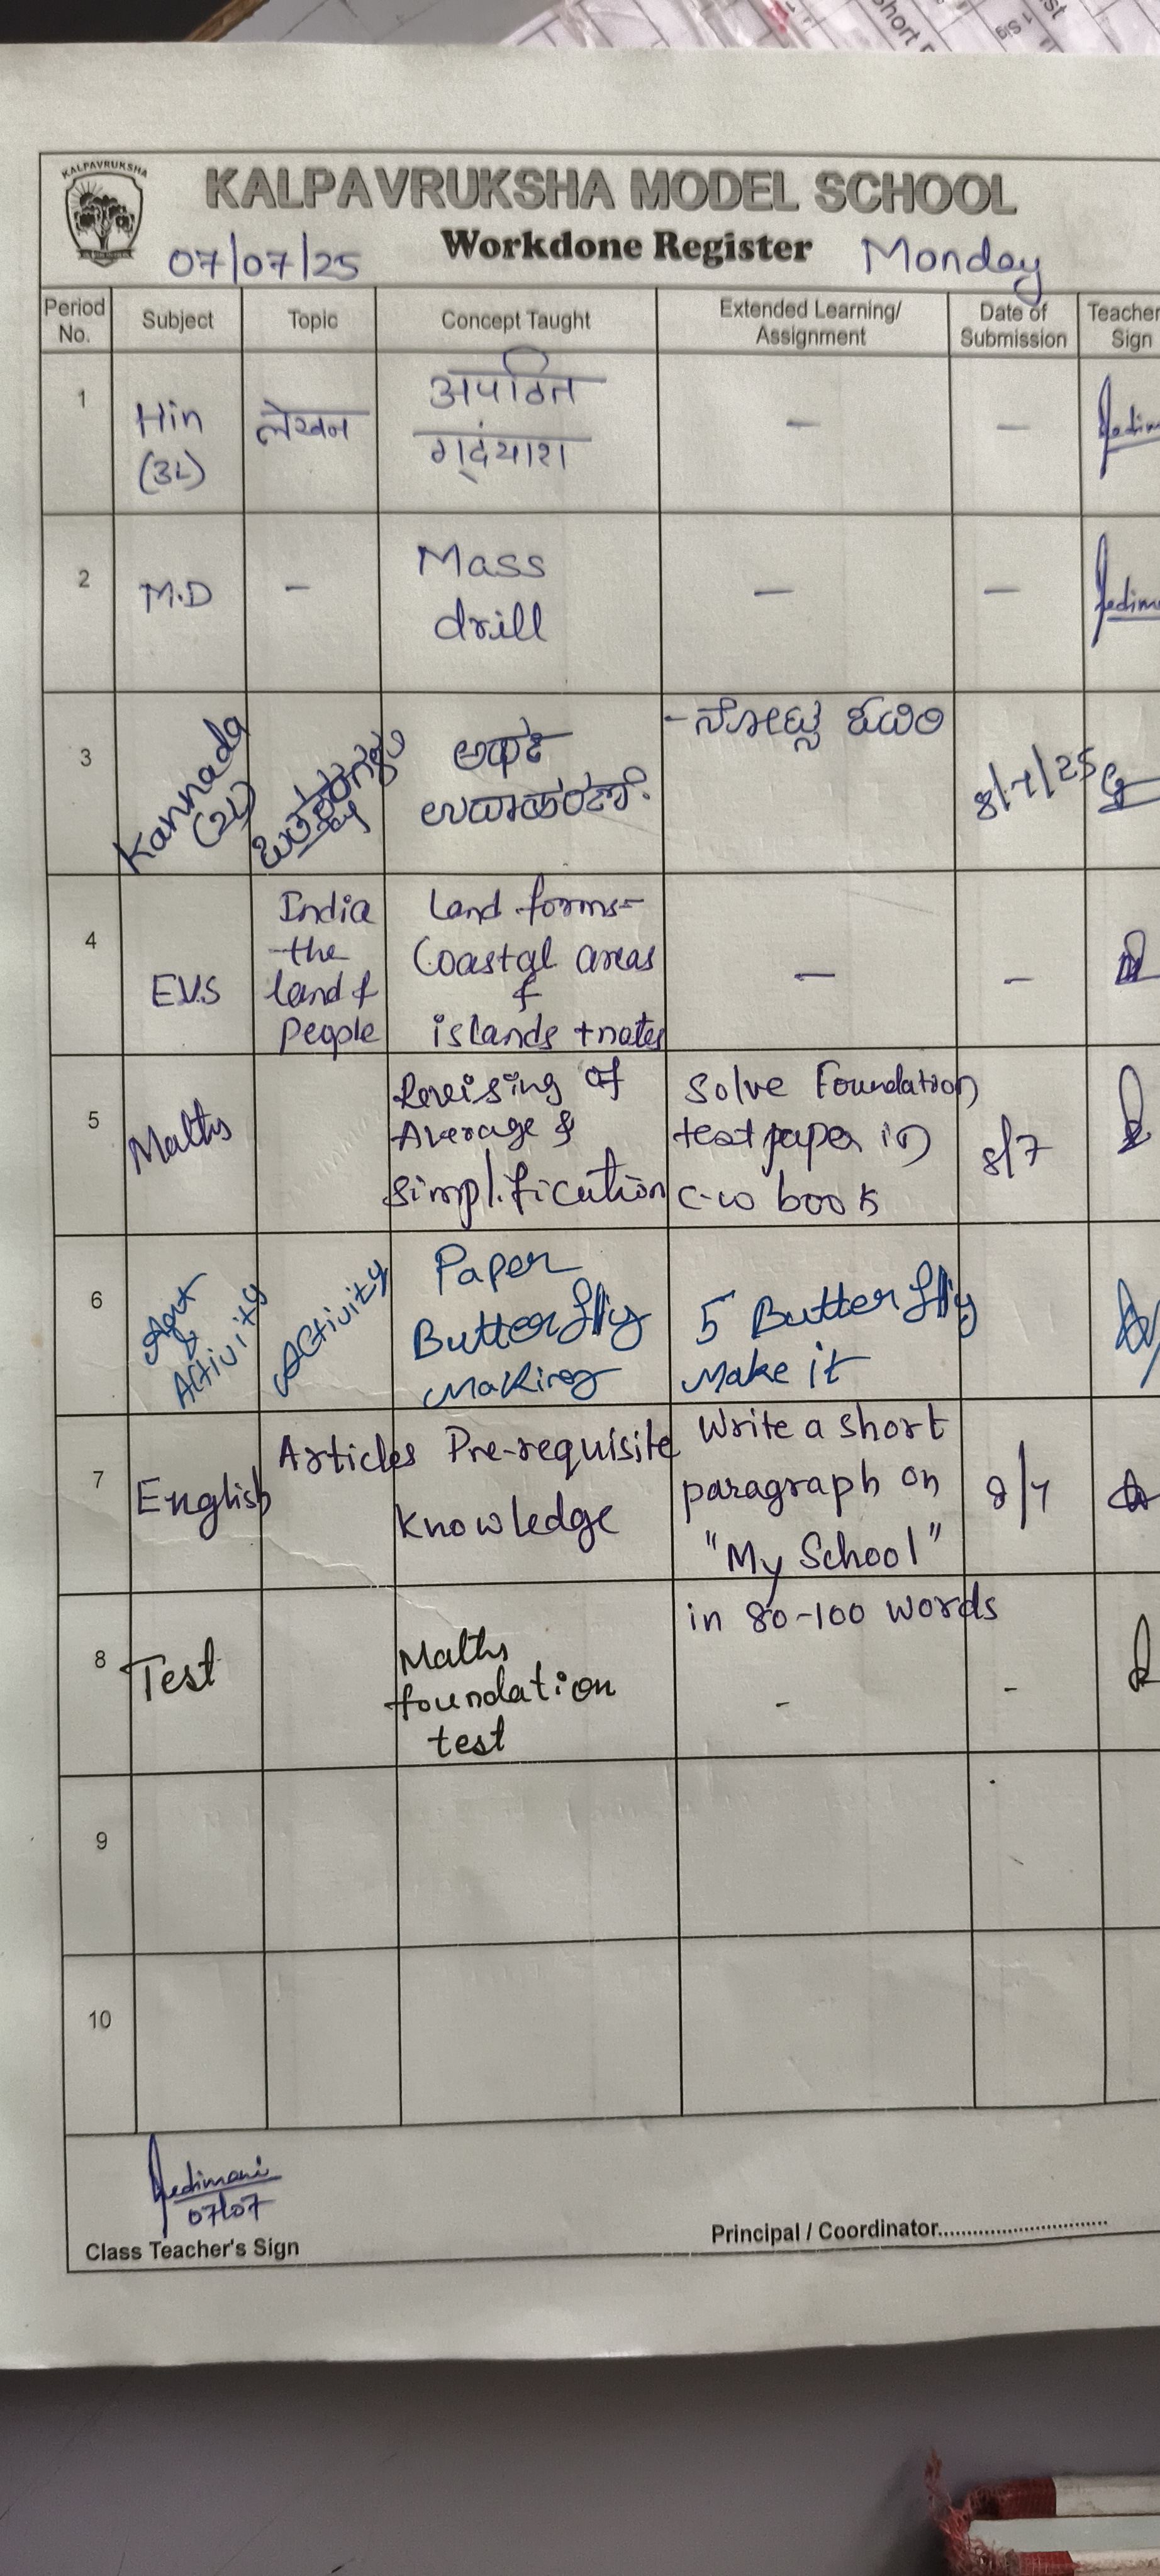 KALPAVRUKSHA
KALPAVRUKSHA MODEL SCHOOL
07/07/25 Workdone Register Monday
Period No. Subject Topic Concept Taught Extended Learning/ Assignment Date of Submission Teacher Sign
1 Hin (3L) लेखन अपठित गद्यांश — —
2 M.D - Mass drill — —
3 Kannada (2L) ಅರ್ಥ ಉದಾಹರಣೆ. - ನೋಟ್ಸ 8/7/25
4 EVS India the land & People Land forms- Coastal areas & islands + notes — -
5 Maths Revising of Average & Simplification Solve Foundation test paper in C-w book 8/7
6 Art & Activity Activity Paper Butterfly Making 5 Butterfly Make it
7 English Articles Pre-requisite Knowledge Write a short paragraph on "My School" in 80-100 words 8/7
8 Test Maths foundation test - -
9
10
07/07
Class Teacher's Sign Principal / Coordinator..............................